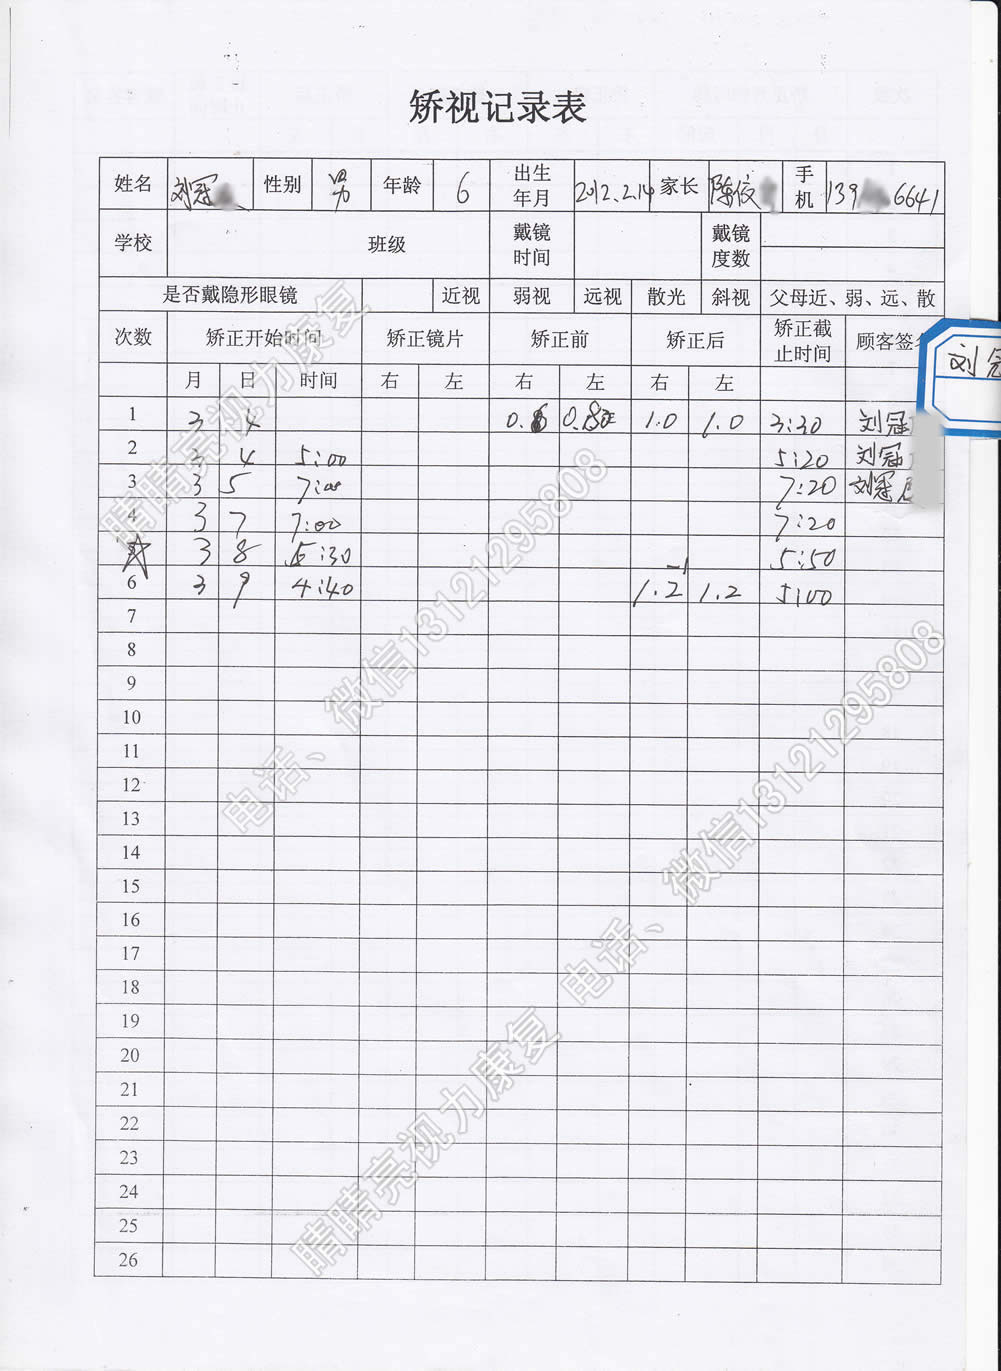 矫视记录表
姓名 刘冠 性别 男 年龄 6 出生年月 2012.2.14 家长 陈 手机 139 6641
学校 班级 戴镜时间 戴镜度数
是否戴隐形眼镜 近视 弱视 远视 散光 斜视 父母近、弱、远、散
次数 矫正开始时间 矫正镜片 矫正前 矫正后 矫正截止时间 顾客签名
月 日 时间 右 左 右 左 右 左
1 3 4 1.0 1.0 3:30 刘冠
2 3 4 5:00 5:20 刘冠
3 3 5 7:00 7:20 刘冠
4 3 7 7:00 7:20
3 8 5:30 5:50
6 3 9 4:40 1.2 -1 1.2 5:00
7
8
9
10
11
12
13
14
15
16
17
18
19
20
21
22
23
24
25
26
刘冠
睛睛亮视力康复 电话、微信13121295808
睛睛亮视力康复 电话、微信13121295808